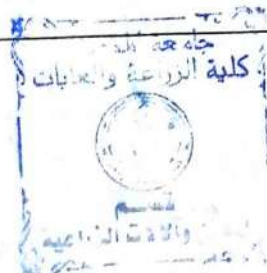 جامعة
كلية الزراعة والغابات
قسم
والآلات الزراعية